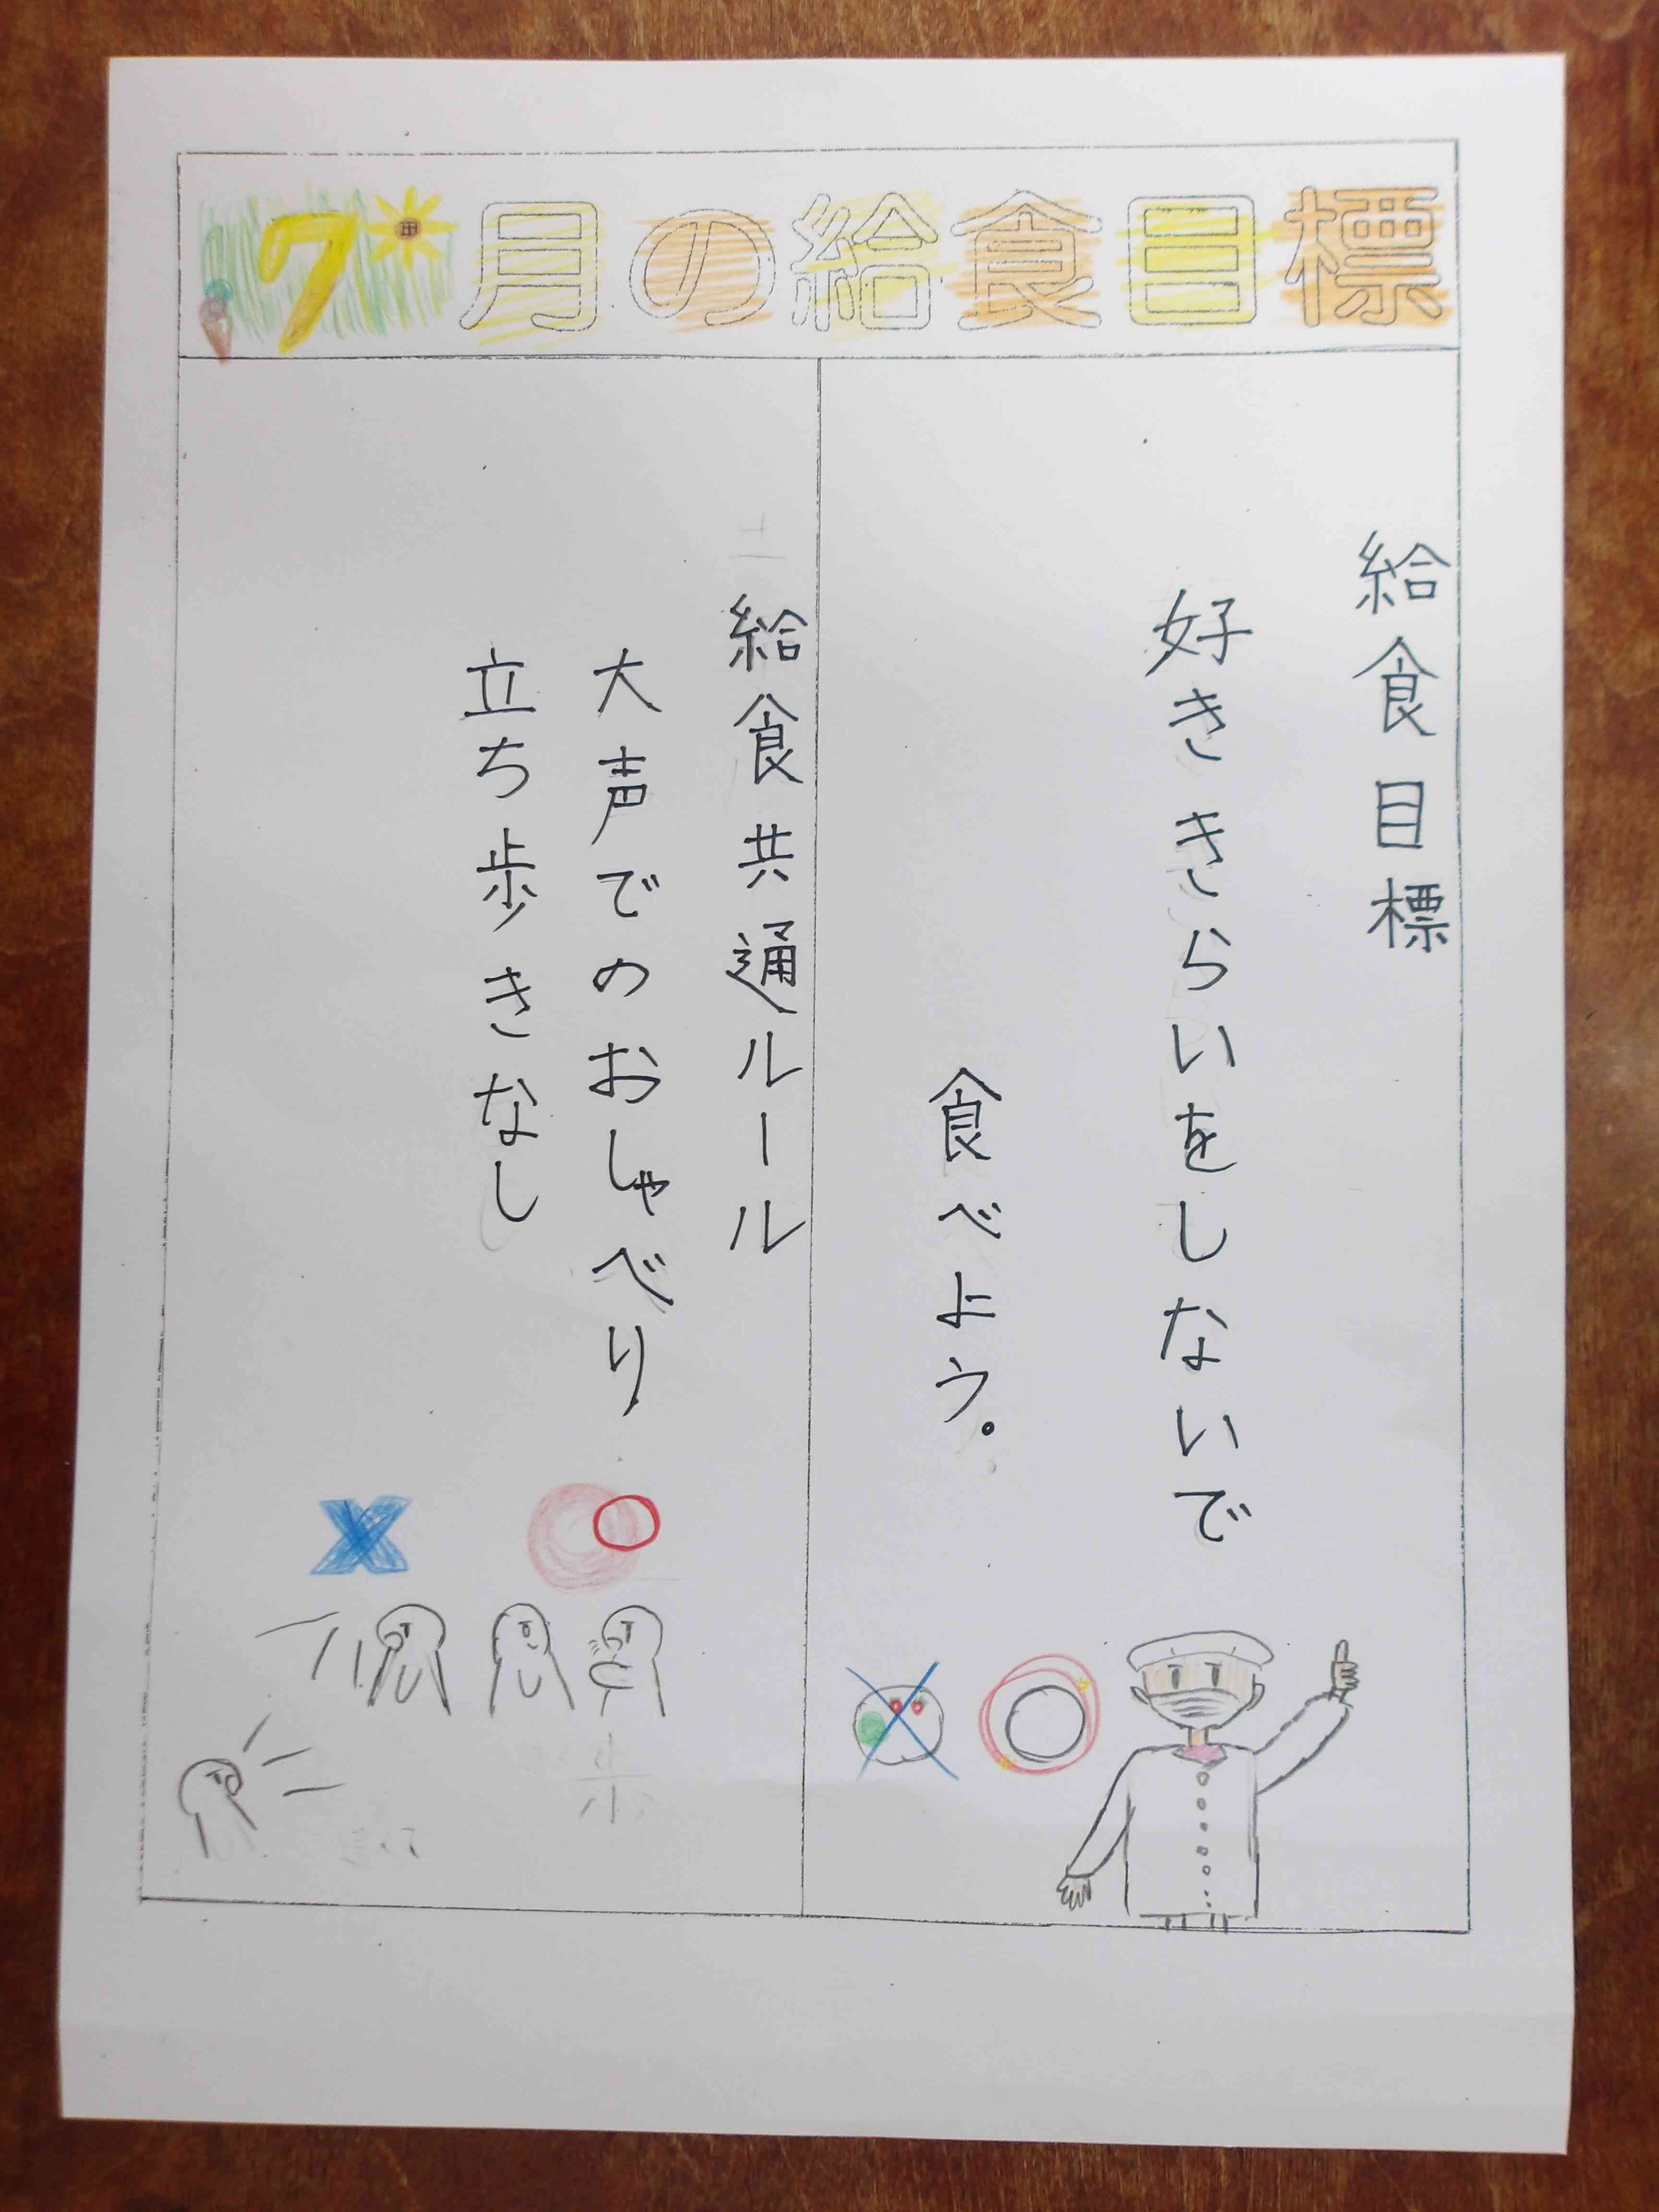 7月の給食目標
給食目標
好ききらいをしないで
食べよう。
給食共通ルール
大声でのおしゃべり
立ち歩きなし